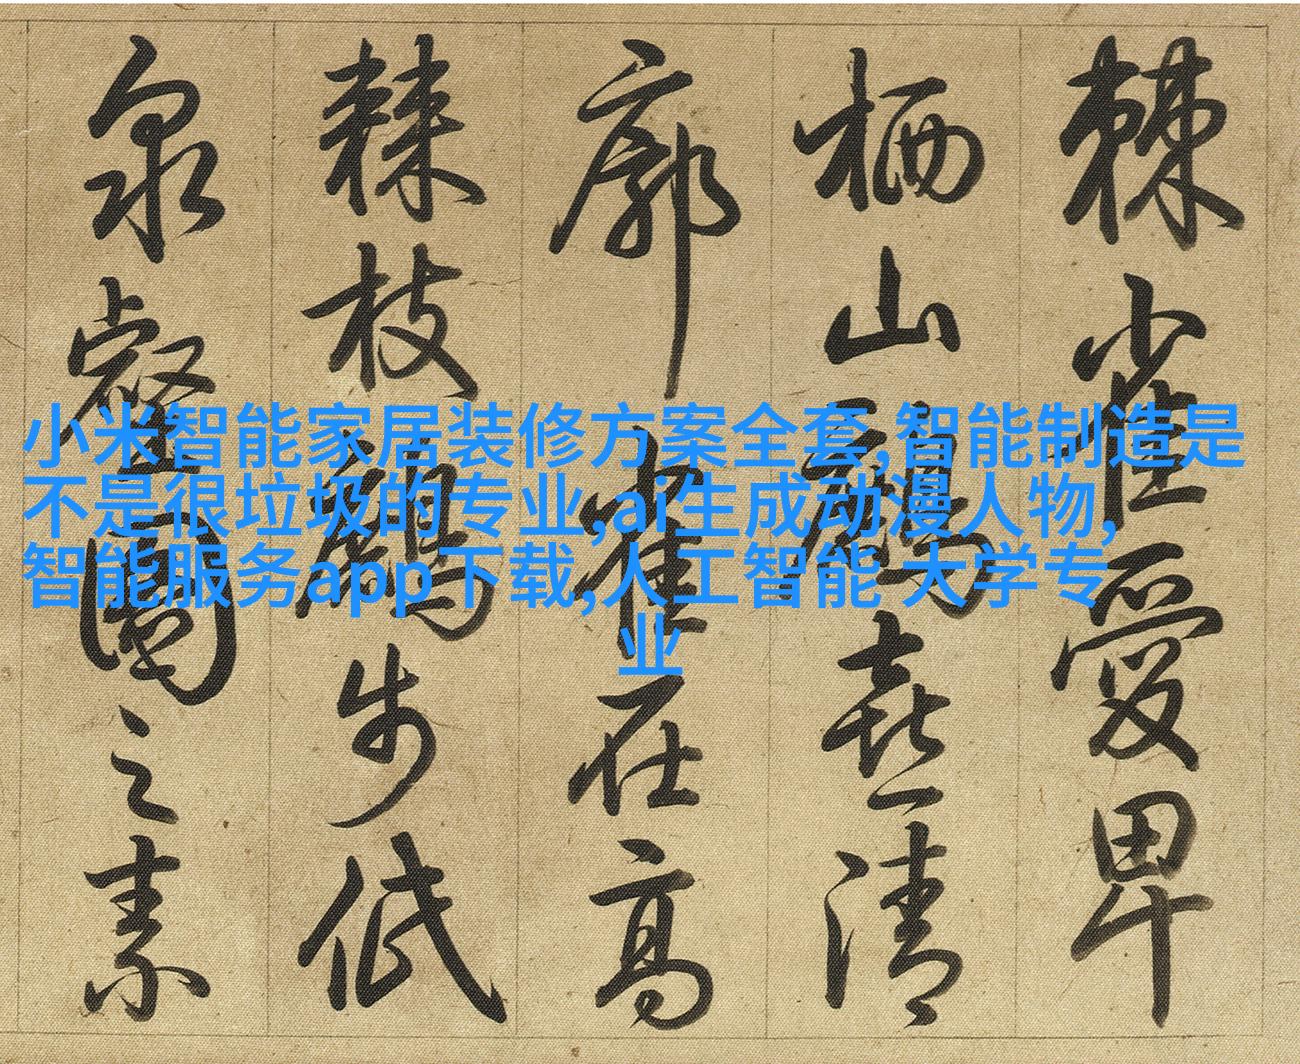 棘雀愛卑
栖山喜清
廓雀在高
棘枝步低
泉壑園之素
小米智能家居装修方案全套,智能制造是
不是很垃圾的专业,ai生成动漫人物,
智能服务app下载,人工智能 大学专
业